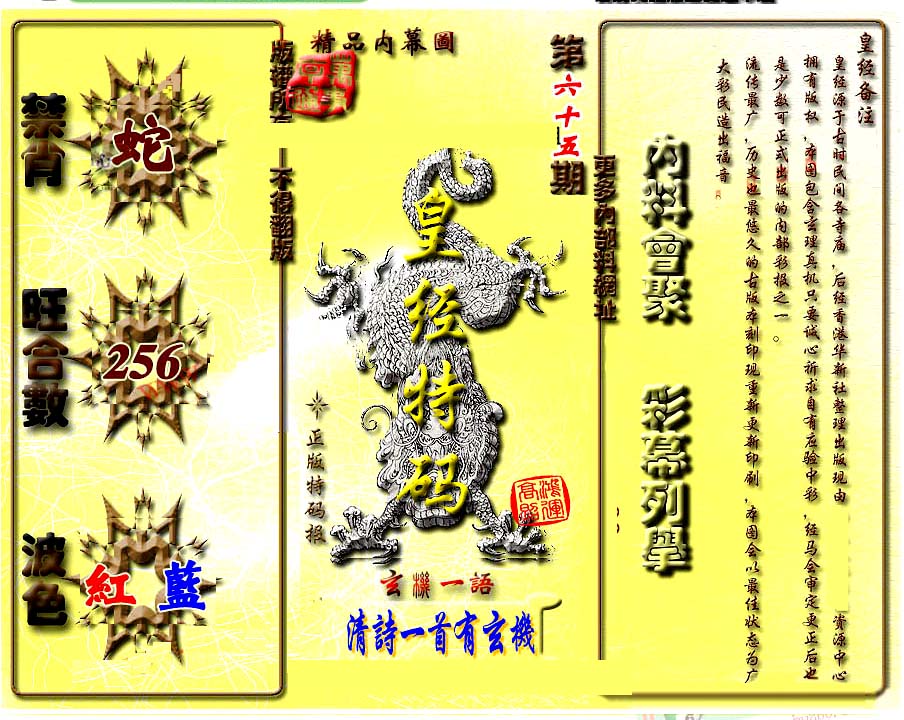 禁肖
蛇
旺合數
256
波色
紅 藍
版權所有
不得翻版
精品内幕圖
第六十五期
皇经特码
正版特码报
鴻運
高照
玄機一語
清詩一首有玄機
更多内部料網址
内料會聚
彩幕列學
皇经备注
皇经源于古时民间各寺庙，后经香港华新社整理出版现由
资源中心
拥有版权，本图包含玄理真机只要诚心祈求自有应验中彩，经马会审定更正后也
是少数可正式出版的内部彩报之一。
流传最广，历史也最悠久的古版本刻印现重新更新印刷，本图会以最佳状态为广
大彩民造出福音